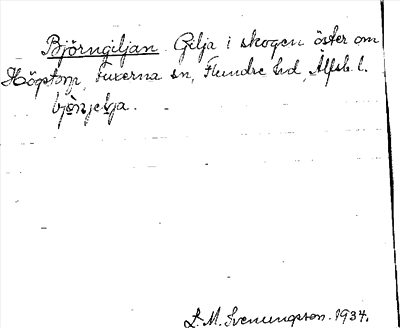 Björngiljan. Gilja i skogen öster om
Högstorp, Fuxerna sn, Flundre hd, Älfsb. l.
S. M. Svenungsson. 1934.